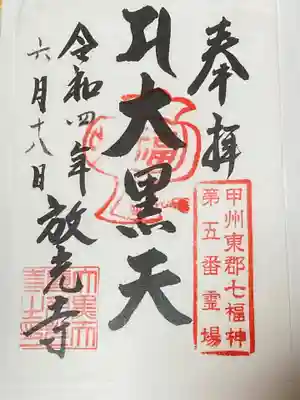 奉拝
甲州東郡七福神
第五番霊場
大黒天
福
令和四年
六月十八日
放光寺